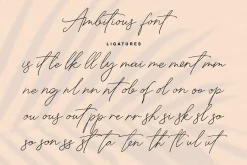 Ambitious font
LIGATURES
is it le lk ll ly mai me ment mm
ne ng nl nn nt ob of ol on oo op
ou ous out pp re rr sh si sk sl so
so son ss st ta ten th tl ul ut